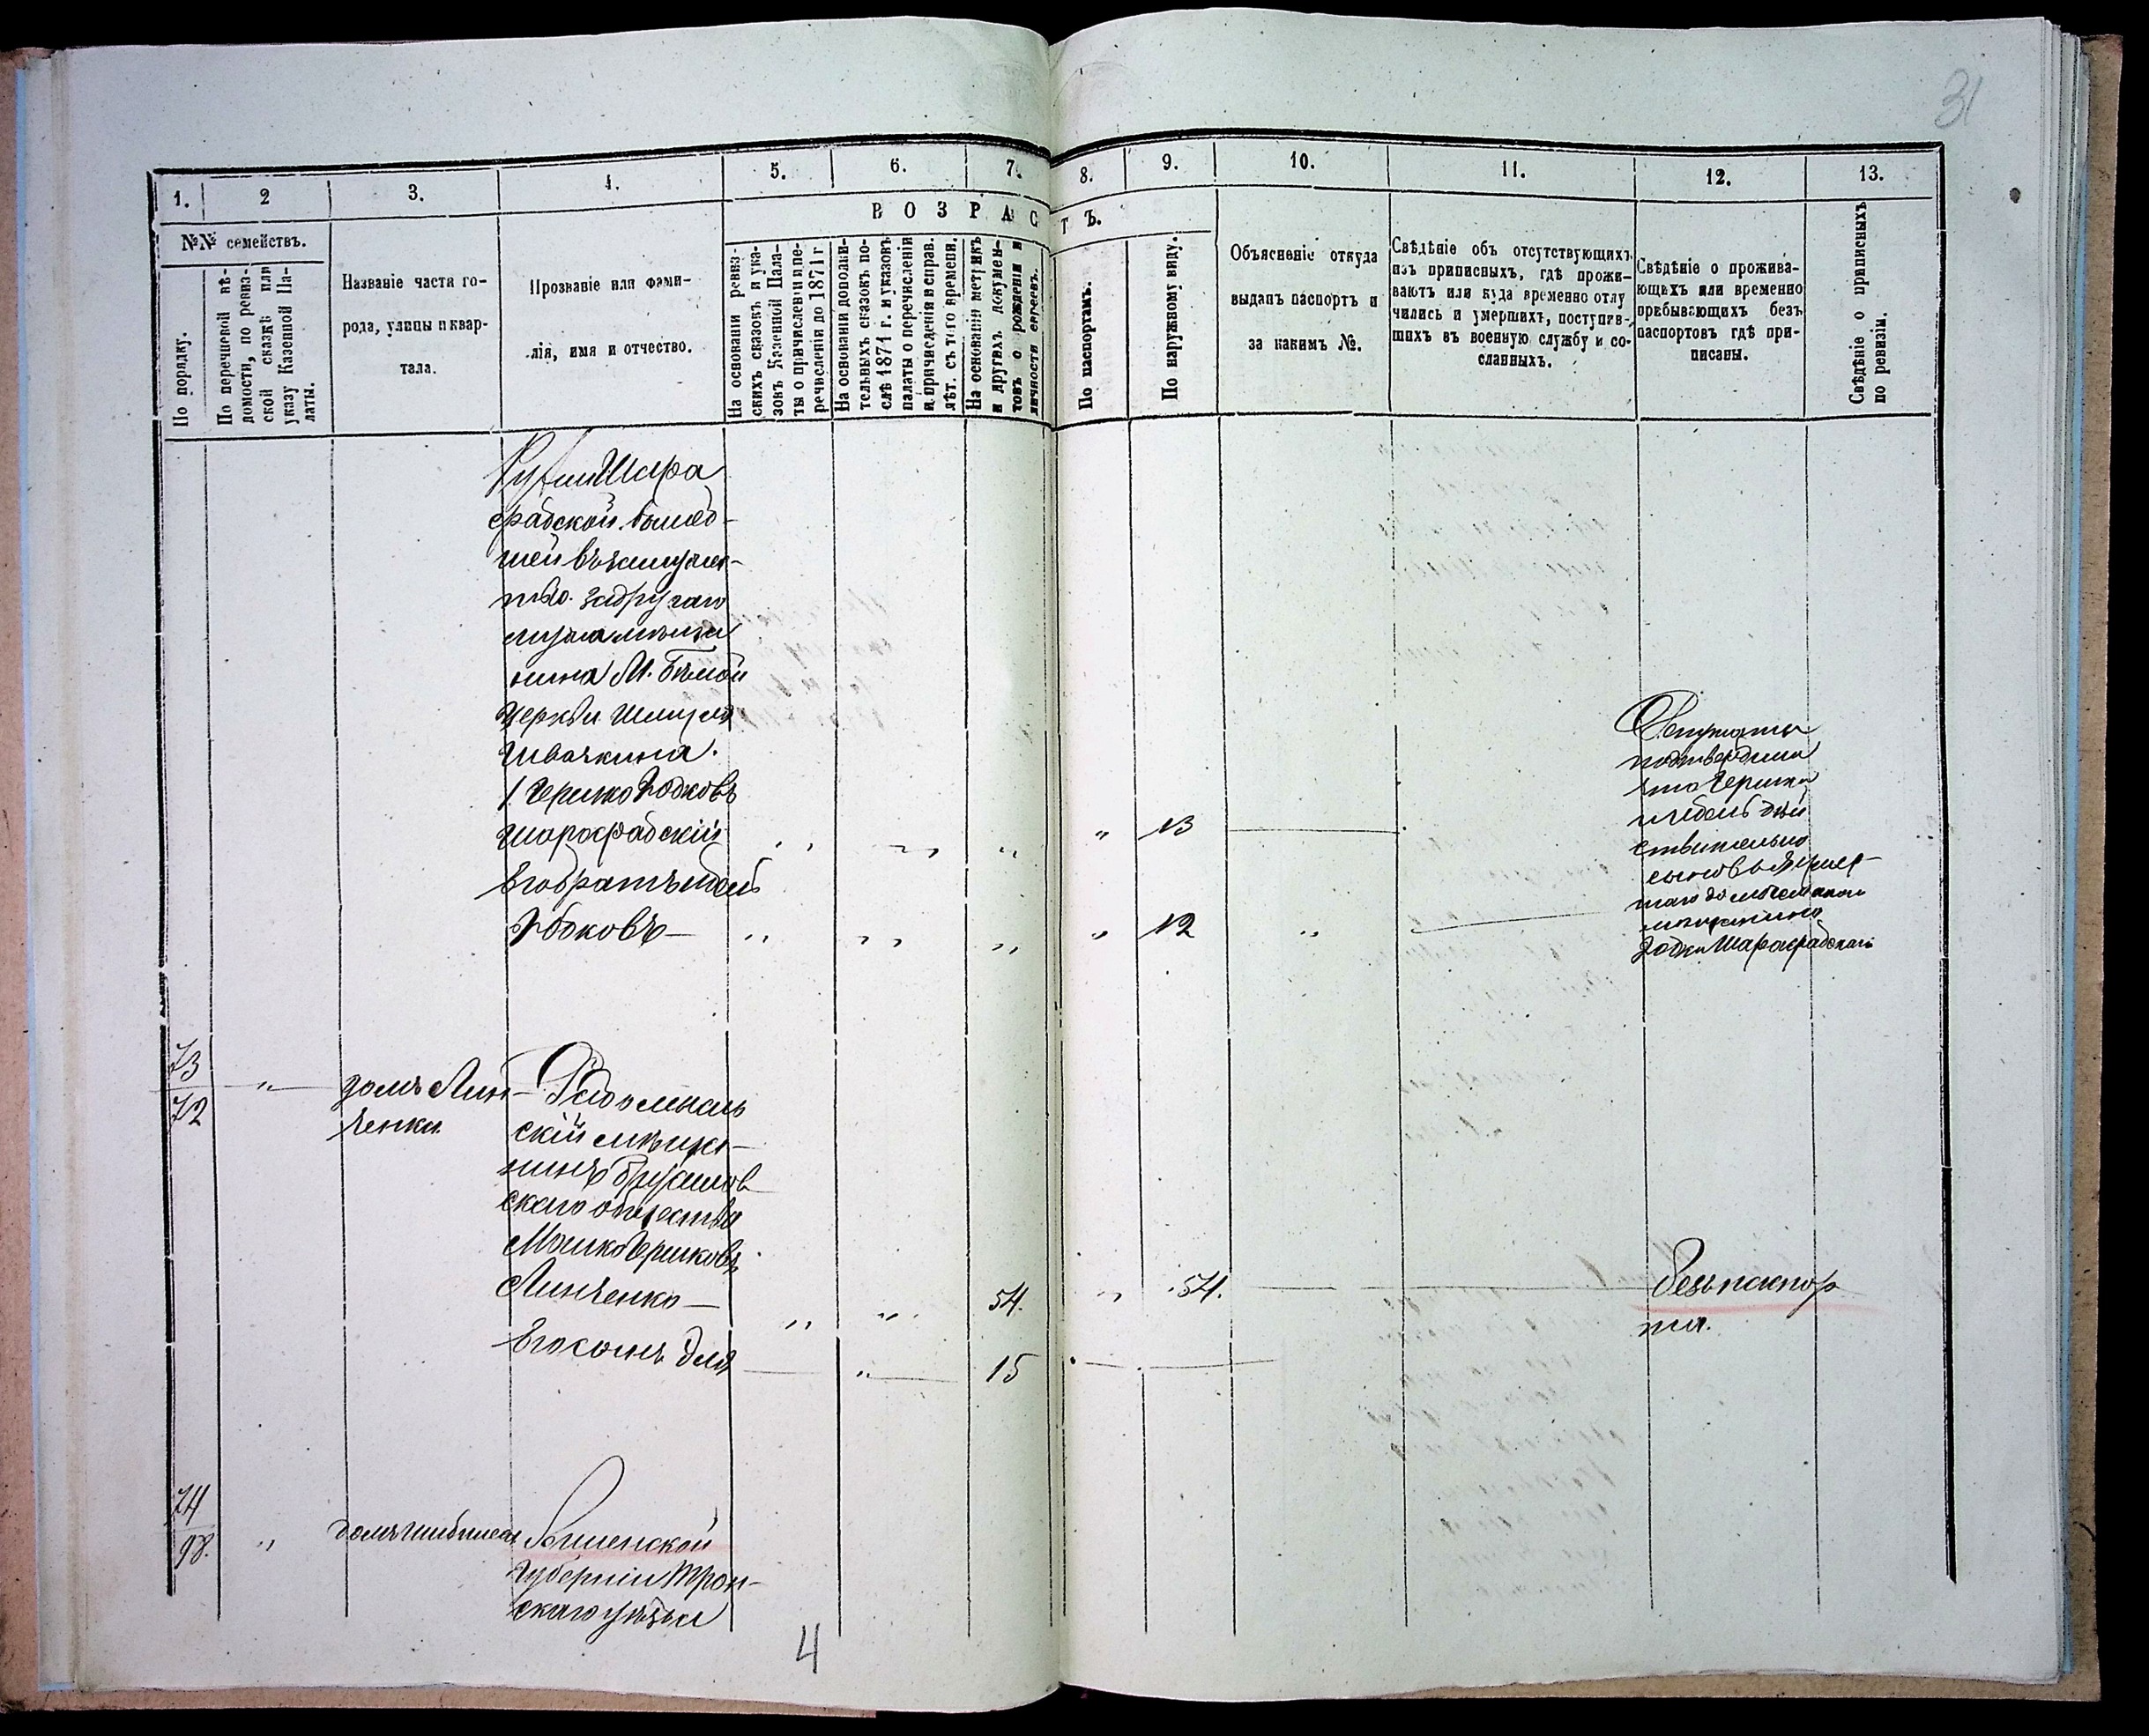 31
1. 2 3. 4. 5. 6. 7. 8. 9. 10. 11. 12. 13.
№№ семействъ.
ВОЗРАСТЪ.
По порядку.
По перечневой вѣ-
домости, по ревиз-
ской сказкѣ или
указу Казенной Па-
латы.
Названіе части го-
рода, улицы и квар-
тала.
Прозваніе или фами-
лія, имя и отчество.
На основаніи ревиз-
скихъ сказокъ и ука-
зовъ Казенной Пала-
ты о причисленіи и пе-
речисленіи до 1871 г
На основаніи дополни-
тельныхъ сказокъ по-
слѣ 1871 г. и указовъ
палаты о перечисленіи
и причисленіи и справ.
лѣт. съ того времени.
На основаніи метрикъ
и другихъ докумен-
товъ о рожденіи и
личности евреевъ.
По паспортамъ.
По наружному виду.
Объясненіе откуда
выданъ паспортъ и
за какимъ №.
Свѣдѣніе объ отсутствующихъ
изъ приписныхъ, гдѣ прожи-
ваютъ или куда временно отлу
чились и умершихъ, поступив-
шихъ въ военную службу и со-
сланныхъ.
Свѣдѣніе о прожива-
ющихъ или временно
пребывающихъ безъ
паспортовъ гдѣ при-
писаны.
Свѣдѣніе о приписныхъ
по ревизіи.
Шара
градской вышед-
шей въ замужес-
тво за другаго
мужа мѣща
нина М. Бѣлой
Церкви Шмуля
Швачкина.
1. Гершко Іодковъ
Шараградскій „ „ „ „ 13
Его братъ
Іодковъ — „ „ „ „ 12 „
Депутаты
подтвердили
что Гершко
дѣй
ствительно
сыновья умер-
шаго
мѣщанина
Іодки Шараградскаго
73
72
„ домъ Лин-
ченки
Радомысль
скій мѣща-
нинъ Брусилов
скаго общества
Мошко Гершковъ
Линченко — „ „ 54. „ 54.
безъ паспор
та.
Его сынъ „ 15
74
98.
„ домъ
Виленской
губерніи Трок-
скаго уѣзда
4